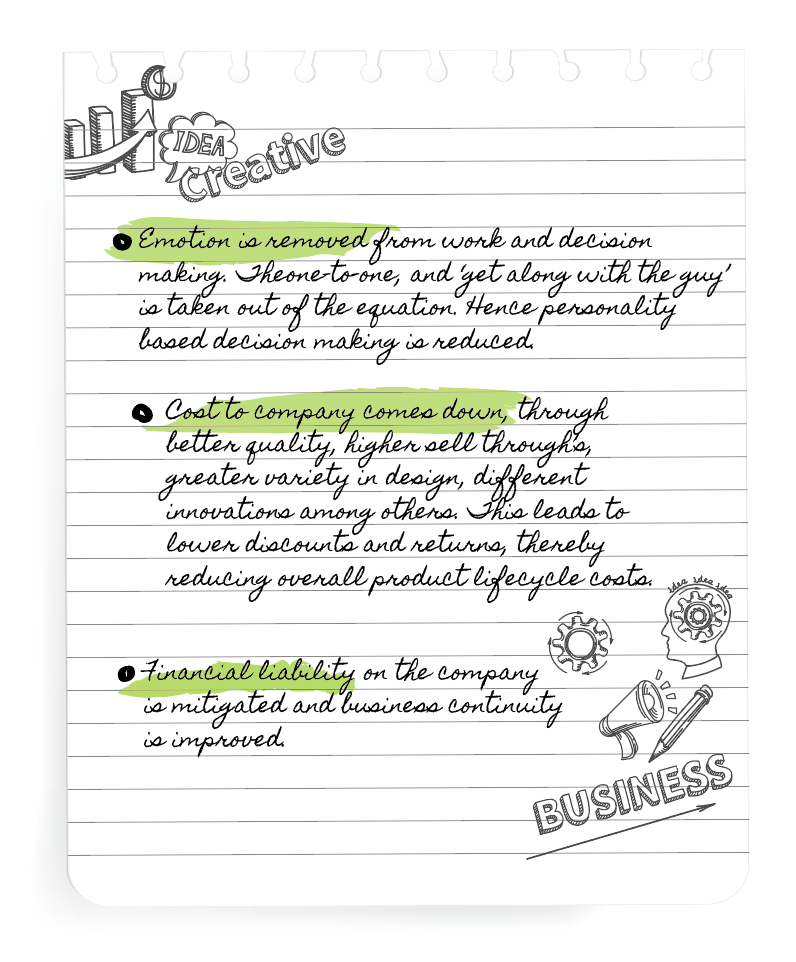 IDEA
Creative
Emotion is removed from work and decision
making. Theone-to-one, and 'get along with the guy'
is taken out of the equation. Hence personality
based decision making is reduced.
Cost to company comes down, through
better quality, higher sell through's,
greater variety in design, different
innovations among others. This leads to
lower discounts and returns, thereby
reducing overall product lifecycle costs.
idea idea idea
Financial liability on the company
is mitigated and business continuity
is improved.
BUSINESS